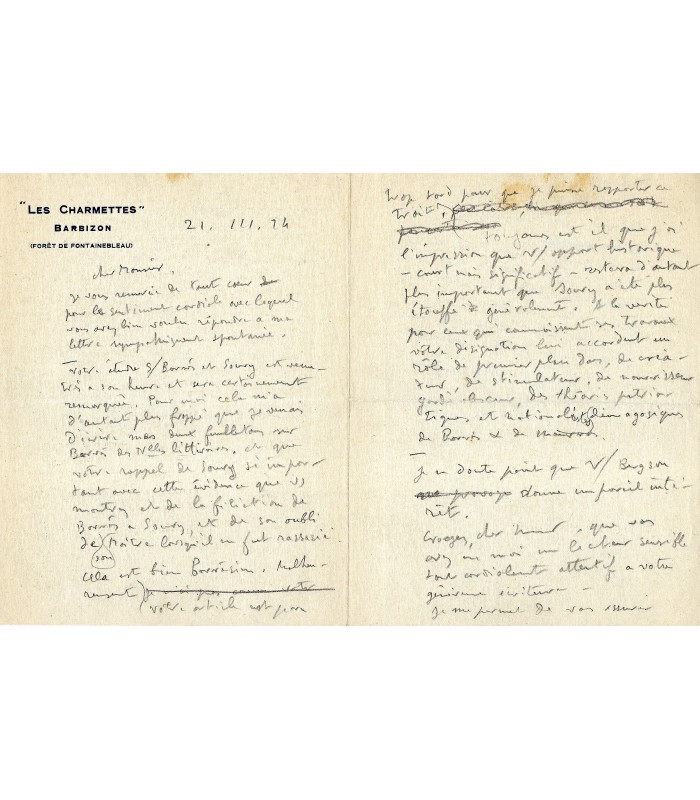 "LES CHARMETTES"
BARBIZON
(FORÊT DE FONTAINEBLEAU)
21. III. 24
cher Monsieur,
je vous remercie de tout cœur
pour les sentiments cordiale avec lequel
vous avez bien voulu répondre à ma
lettre sympathiquement spontanée.
— votre étude s/ Barrès et Soury est
à son heure et sera certainement
remarquée. Pour moi cela m'a
d'autant plus frappé que je venais
d'écrire mes deux feuilletons sur
Barrès des Nlles littéraires, et que
votre rappel de Soury si impor-
tant avec cette évidence que vs
montrez et de la filiation de
Barrès à Soury, et de son oubli
de son Maître lorsqu'il en fut rassasié -
Cela est bien Barrésien. Malheu-
reusement
votre article est paru
trop tard pour que je puisse rapporter ce
trait,
toujours est il que j'ai
l'impression que v/ apport historique
- court mais significatif - restera d'autant
plus important que Soury a été plus
étouffé généralement. Et la verité
pour ceux qui connaissent ses travaux
votre désignation lui accordent un
rôle de premier plan dans, de créa-
teur, de stimulateur, de nourrisseur
gardé obscur, des théories patrio-
tiques et nationalistes démagogiques
de Barrès & de
—
Je ne doute point que v/ Bergson
donne un pareil inté-
rêt.
Croyez, cher Monsieur, que vous
avez en moi un lecteur sensible
cordialement attentif à votre
généreuse écriture —
je me permet de vous assurer